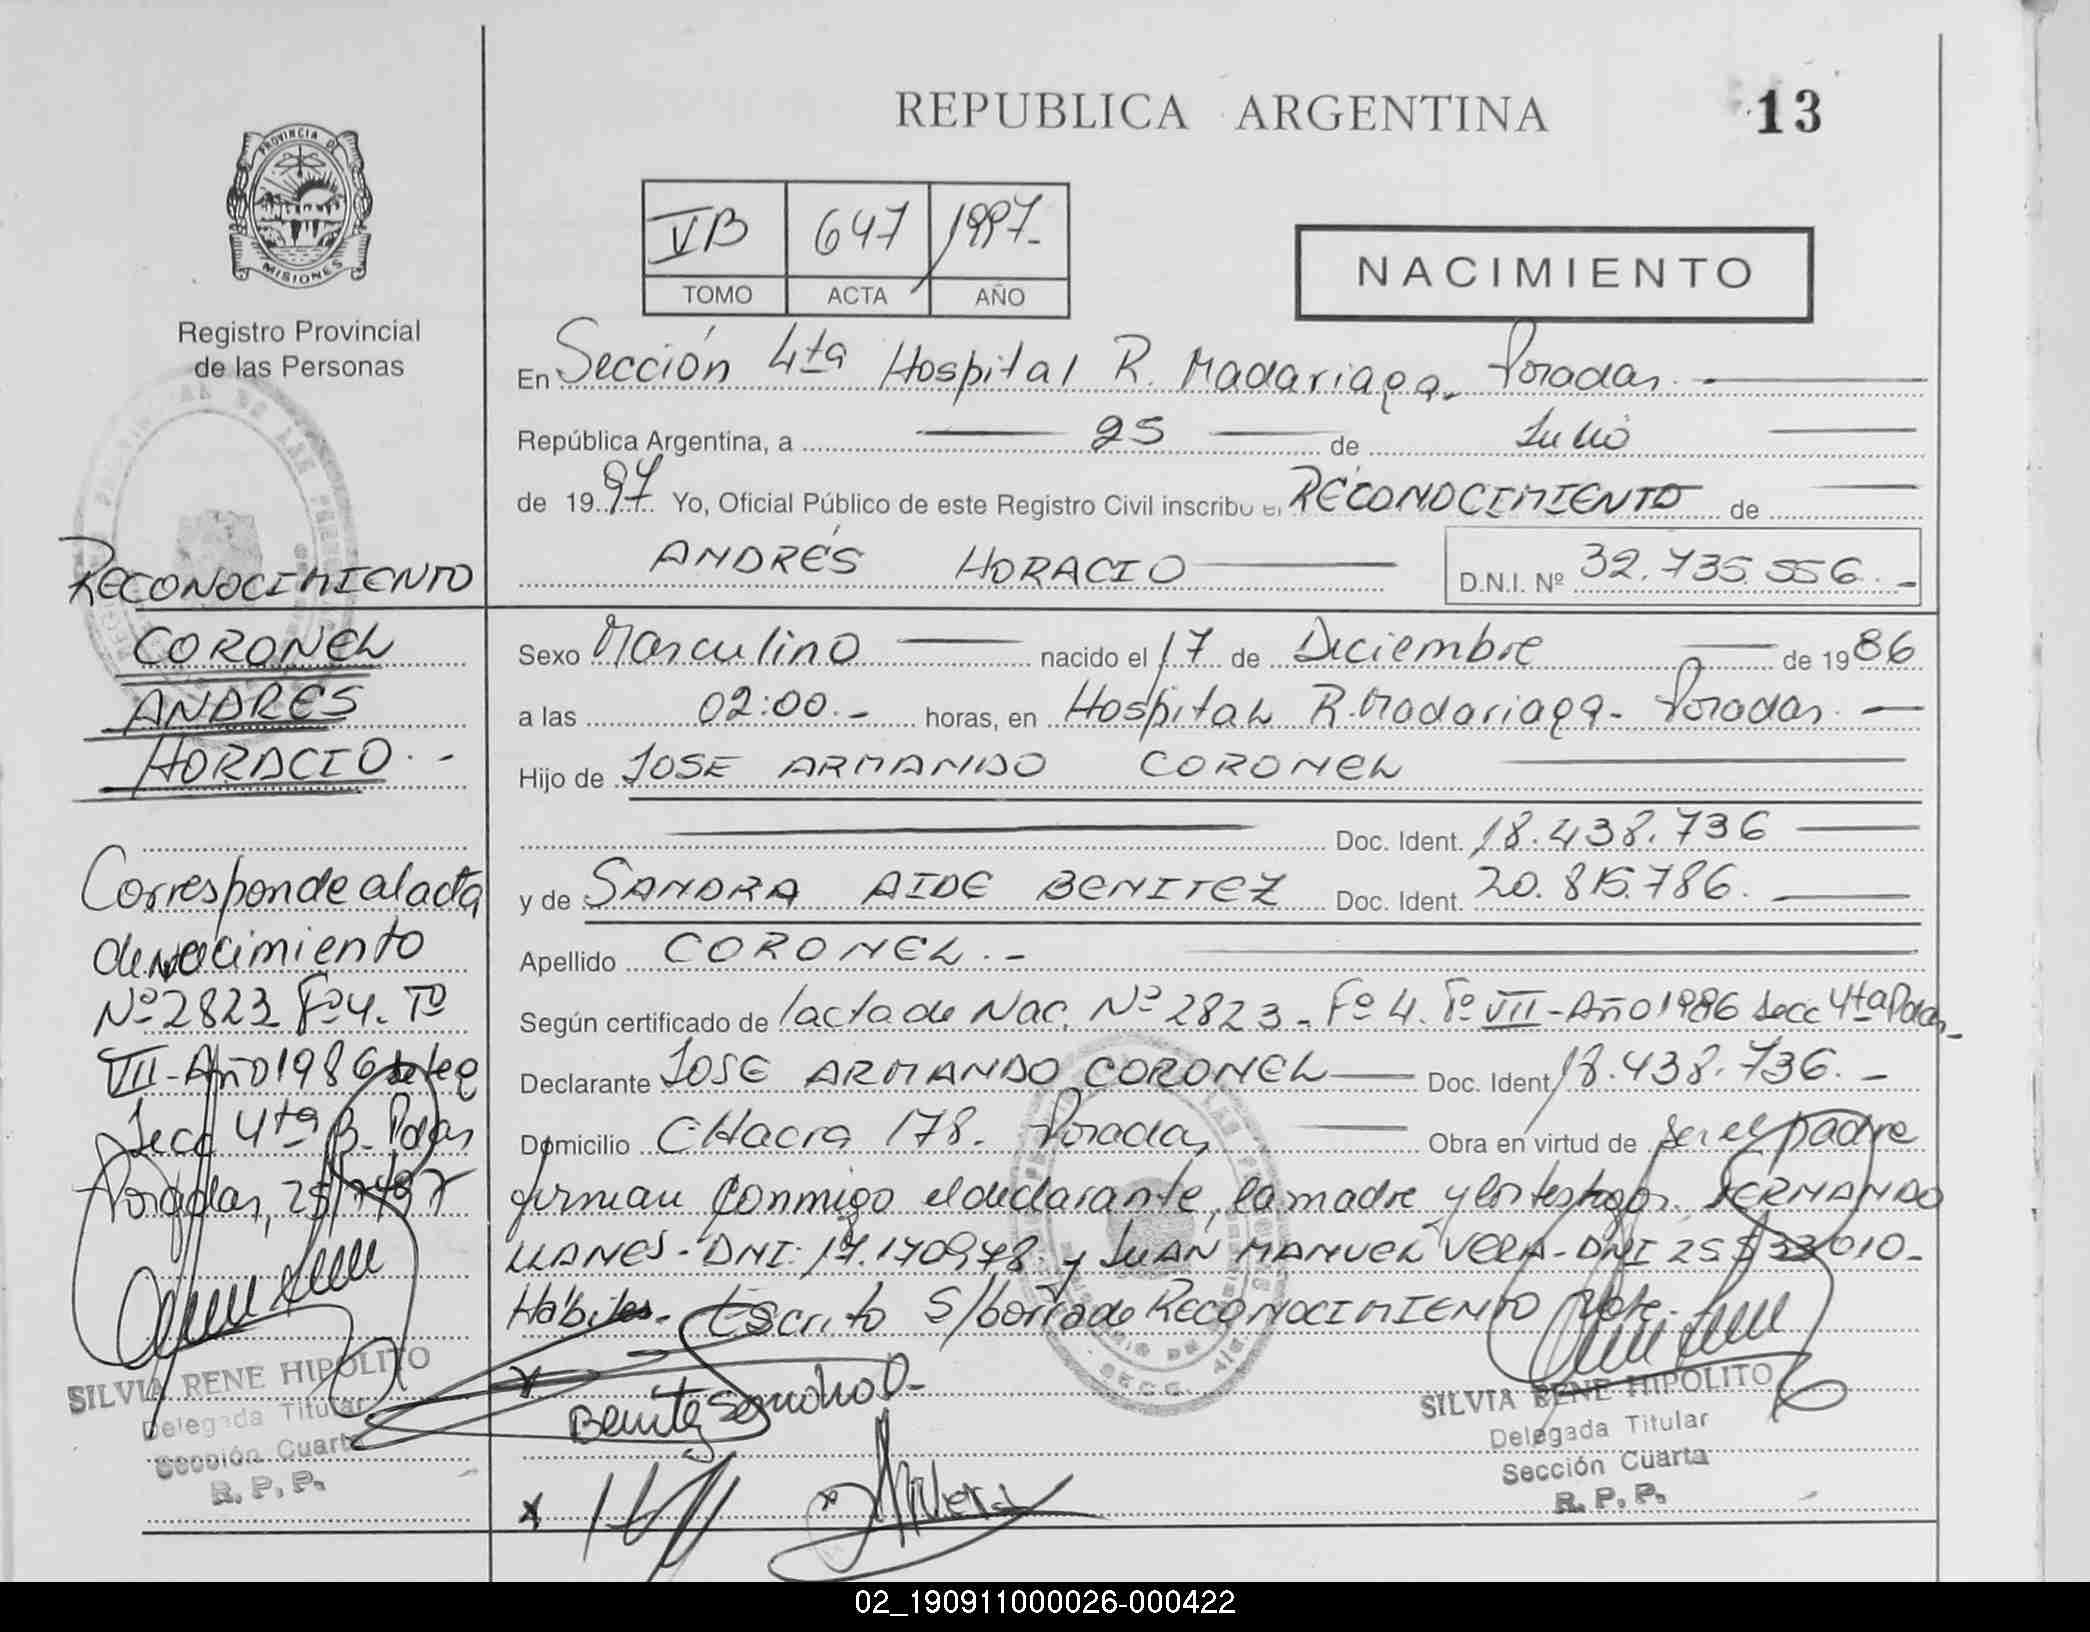 REPUBLICA ARGENTINA
13
PROVINCIA DE
MISIONES
Registro Provincial
de las Personas
VB 647 1997.-
TOMO ACTA AÑO
NACIMIENTO
En Sección 4ta Hospital R. Madariaga. Posadas.
República Argentina, a 25 de Julio
de 1997 Yo, Oficial Público de este Registro Civil inscribo el RECONOCIMIENTO de
ANDRÉS HORACIO D.N.I. Nº 32.735.556.-
RECONOCIMIENTO
CORONEL
ANDRES
HORACIO.-
Corresponde al acta
de nacimiento
Nº 2823 Fº 4. Tº
VII-Año 1986
Secc 4ta B- Pdas
Posadas, 25/7/97
Sexo Masculino nacido el 17 de Diciembre de 1986
a las 02:00.- horas, en Hospital R. Madariaga- Posadas.
Hijo de JOSE ARMANDO CORONEL
Doc. Ident. 18.438.736
y de SANDRA AIDE BENITEZ Doc. Ident. 20.815.786.
Apellido CORONEL.-
Según certificado de /acta de Nac. Nº 2823- Fº 4. Tº VII-Año 1986 Secc 4ta Pdas.
Declarante JOSE ARMANDO CORONEL Doc. Ident 18.438.736.-
Domicilio CHacra 178. Posadas Obra en virtud de ser el padre
firman conmigo el declarante, la madre y los testigos FERNANDO
LLANES- DNI: 17.170978. y JUAN MANUEL VERA- DNI 25533010-
Hábiles- Escrito S/borrado RECONOCIMIENTO Vale.-
Benitez Sandra
SILVIA RENE HIPOLITO
Delegada Titular
Sección Cuarta
R. P. P.
SILVIA RENE HIPOLITO
Delegada Titular
Sección Cuarta
R. P. P.
02_190911000026-000422